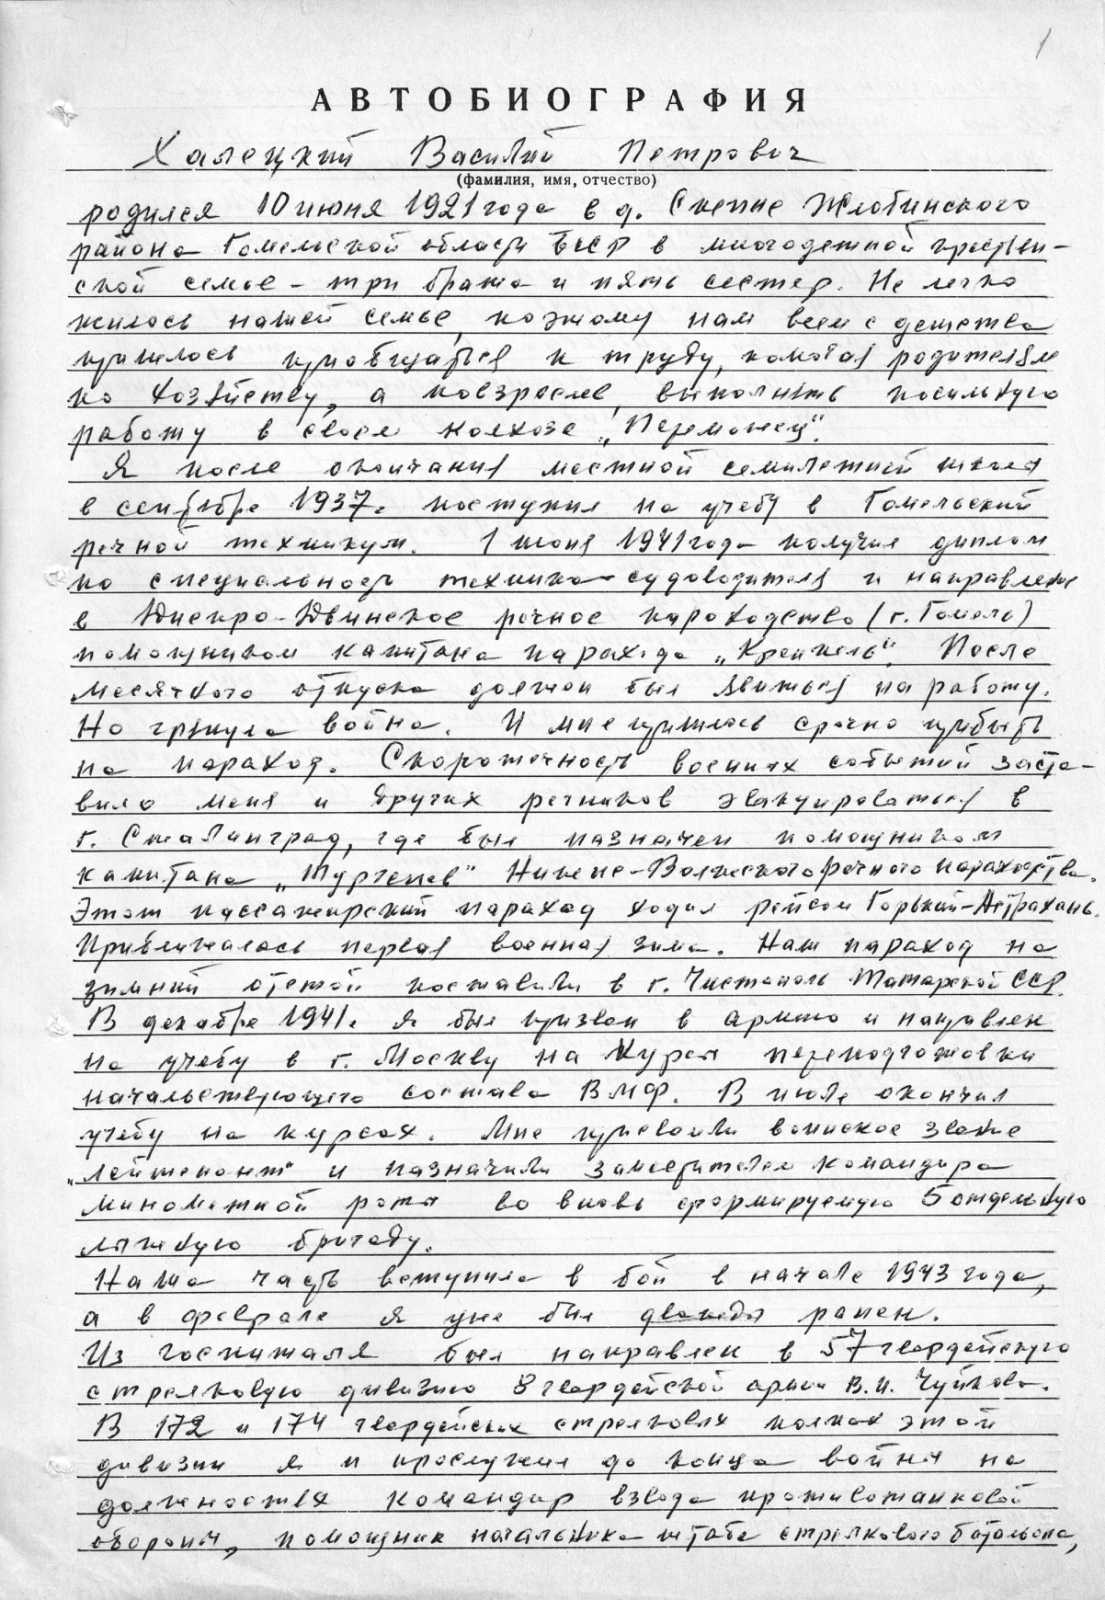 1
АВТОБИОГРАФИЯ
Халецкий Василий Петрович
(фамилия, имя, отчество)
родился 10 июня 1921 года в д. Скепне Жлобинского
района Гомельской области БССР в многодетной крестьян-
ской семье - три брата и пять сестер. Не легко
жилось нашей семье, поэтому нам всем с детства
пришлось приобщаться к труду, помогая родителям
по хозяйству, а повзрослев, выполнять посильную
работу в своем колхозе „Переможец".
Я после окончания местной семилетней школы
в сентябре 1937г. поступил на учебу в Гомельский
речной техникум. 1 июня 1941 года получил диплом
по специальность техника-судоводителя и направление
в Днепро-Двинское речное пароходство (г. Гомель)
помощником капитана парохода „Кремль". После
месячного отпуска должен был явиться на работу.
Но грянула война. И мне пришлось срочно прибыть
на пароход. Скоротечность военных событий заста-
вило меня и других речников эвакуироваться в
г. Сталинград, где был назначен помощником
капитана „Тургенев" Нижне-Волжского речного пароходства.
Этот пассажирский пароход ходил рейсом Горький-Астрахань.
Приближалась первая военная зима. Наш пароход на
зимний отстой поставили в г. Чистополь Татарской ССР.
В декабре 1941г. я был призван в армию и направлен
на учебу в г. Москву на Курсы переподготовки
начальствующего состава ВМФ. В июле окончил
учебу на курсах. Мне присвоили воинское звание
„лейтенант" и назначили заместителем командира
минометной роты во вновь формируемую 5 отдельную
лыжную бригаду.
Наша часть вступила в бой в начале 1943 года,
а в феврале я уже был дважды ранен.
Из госпиталя был направлен в 57 гвардейскую
стрелковую дивизию 8 гвардейской армии В.И. Чуйкова.
В 172 и 174 гвардейских стрелковых полках этой
дивизии я и прослужил до конца войны на
должностях командир взвода противотанковой
обороны, помощник начальника штаба стрелкового батальона,